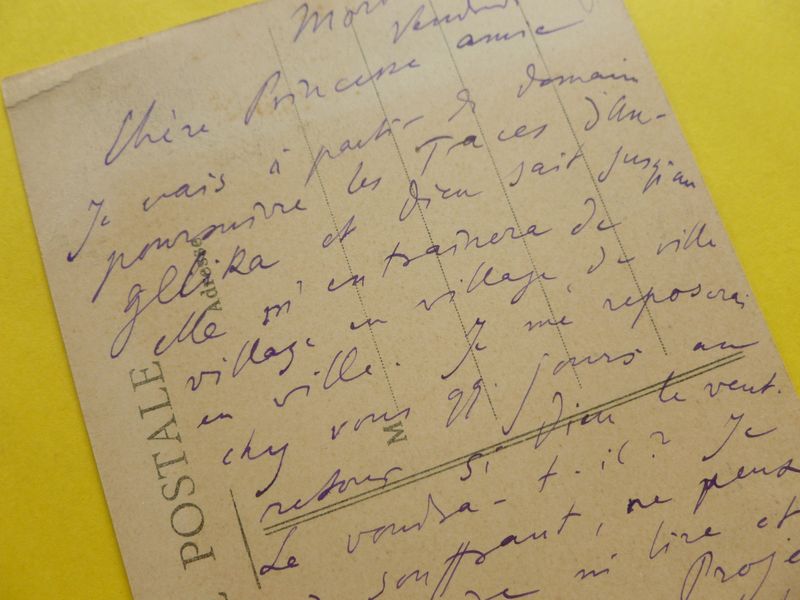 Vendredi
Chère Princesse amie
Je vais à partir de demain
poursuivre les traces d'An-
gelika et Dieu sait jusqu'au
elle m'entrainera de
village en village, de ville
en ville. Je me reposerai
chez vous qq. jours au
retour si Dieu le veut.
Le voudra-t-il? Je
souffrant, ne peux
ni lire et
Proje
POSTALE
Adresse
M